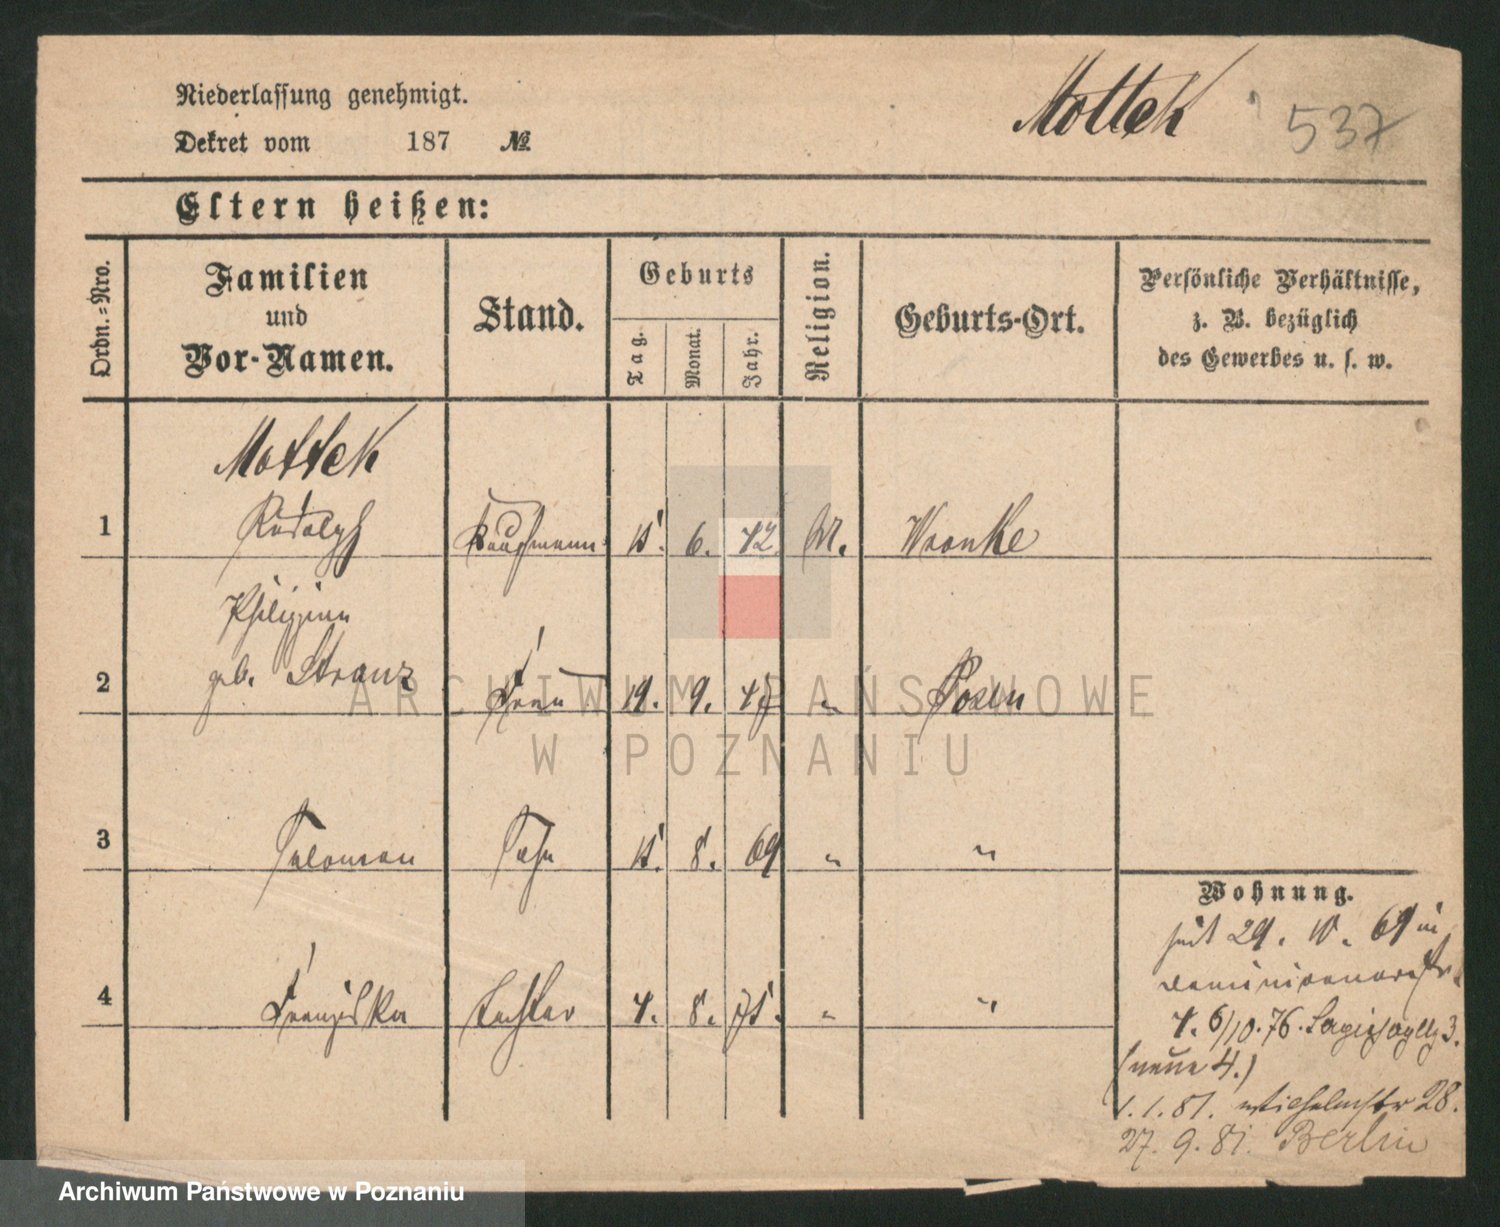 Niederlassung genehmigt.
Dekret vom 187 №
Mottek
537
Eltern heißen:
Ordn.=Nro.
Familien
und
Vor-Namen.
Stand.
Geburts
Tag.
Monat.
Jahr.
Religion.
Geburts-Ort.
Persönliche Verhältnisse,
z. B. bezüglich
des Gewerbes u. s. w.
Mottek
1 Rudolph Kaufmann 6. 42 M. Wronke
Philippine
2 geb. Stranz Frau 19. 9. 47 " Posen
3 Salomon Sohn 8. 69 " "
4 Franziska Tochter 4. 8. 75. " "
Wohnung.
seit 29. 10. 69 in
Dominicanerstr
4. 6/10. 76. 3.
(neue 4.)
1. 1. 81. Wilhelmstr 28.
27. 9. 81. Berlin
ARCHIWUM PAŃSTWOWE
W POZNANIU
Archiwum Państwowe w Poznaniu